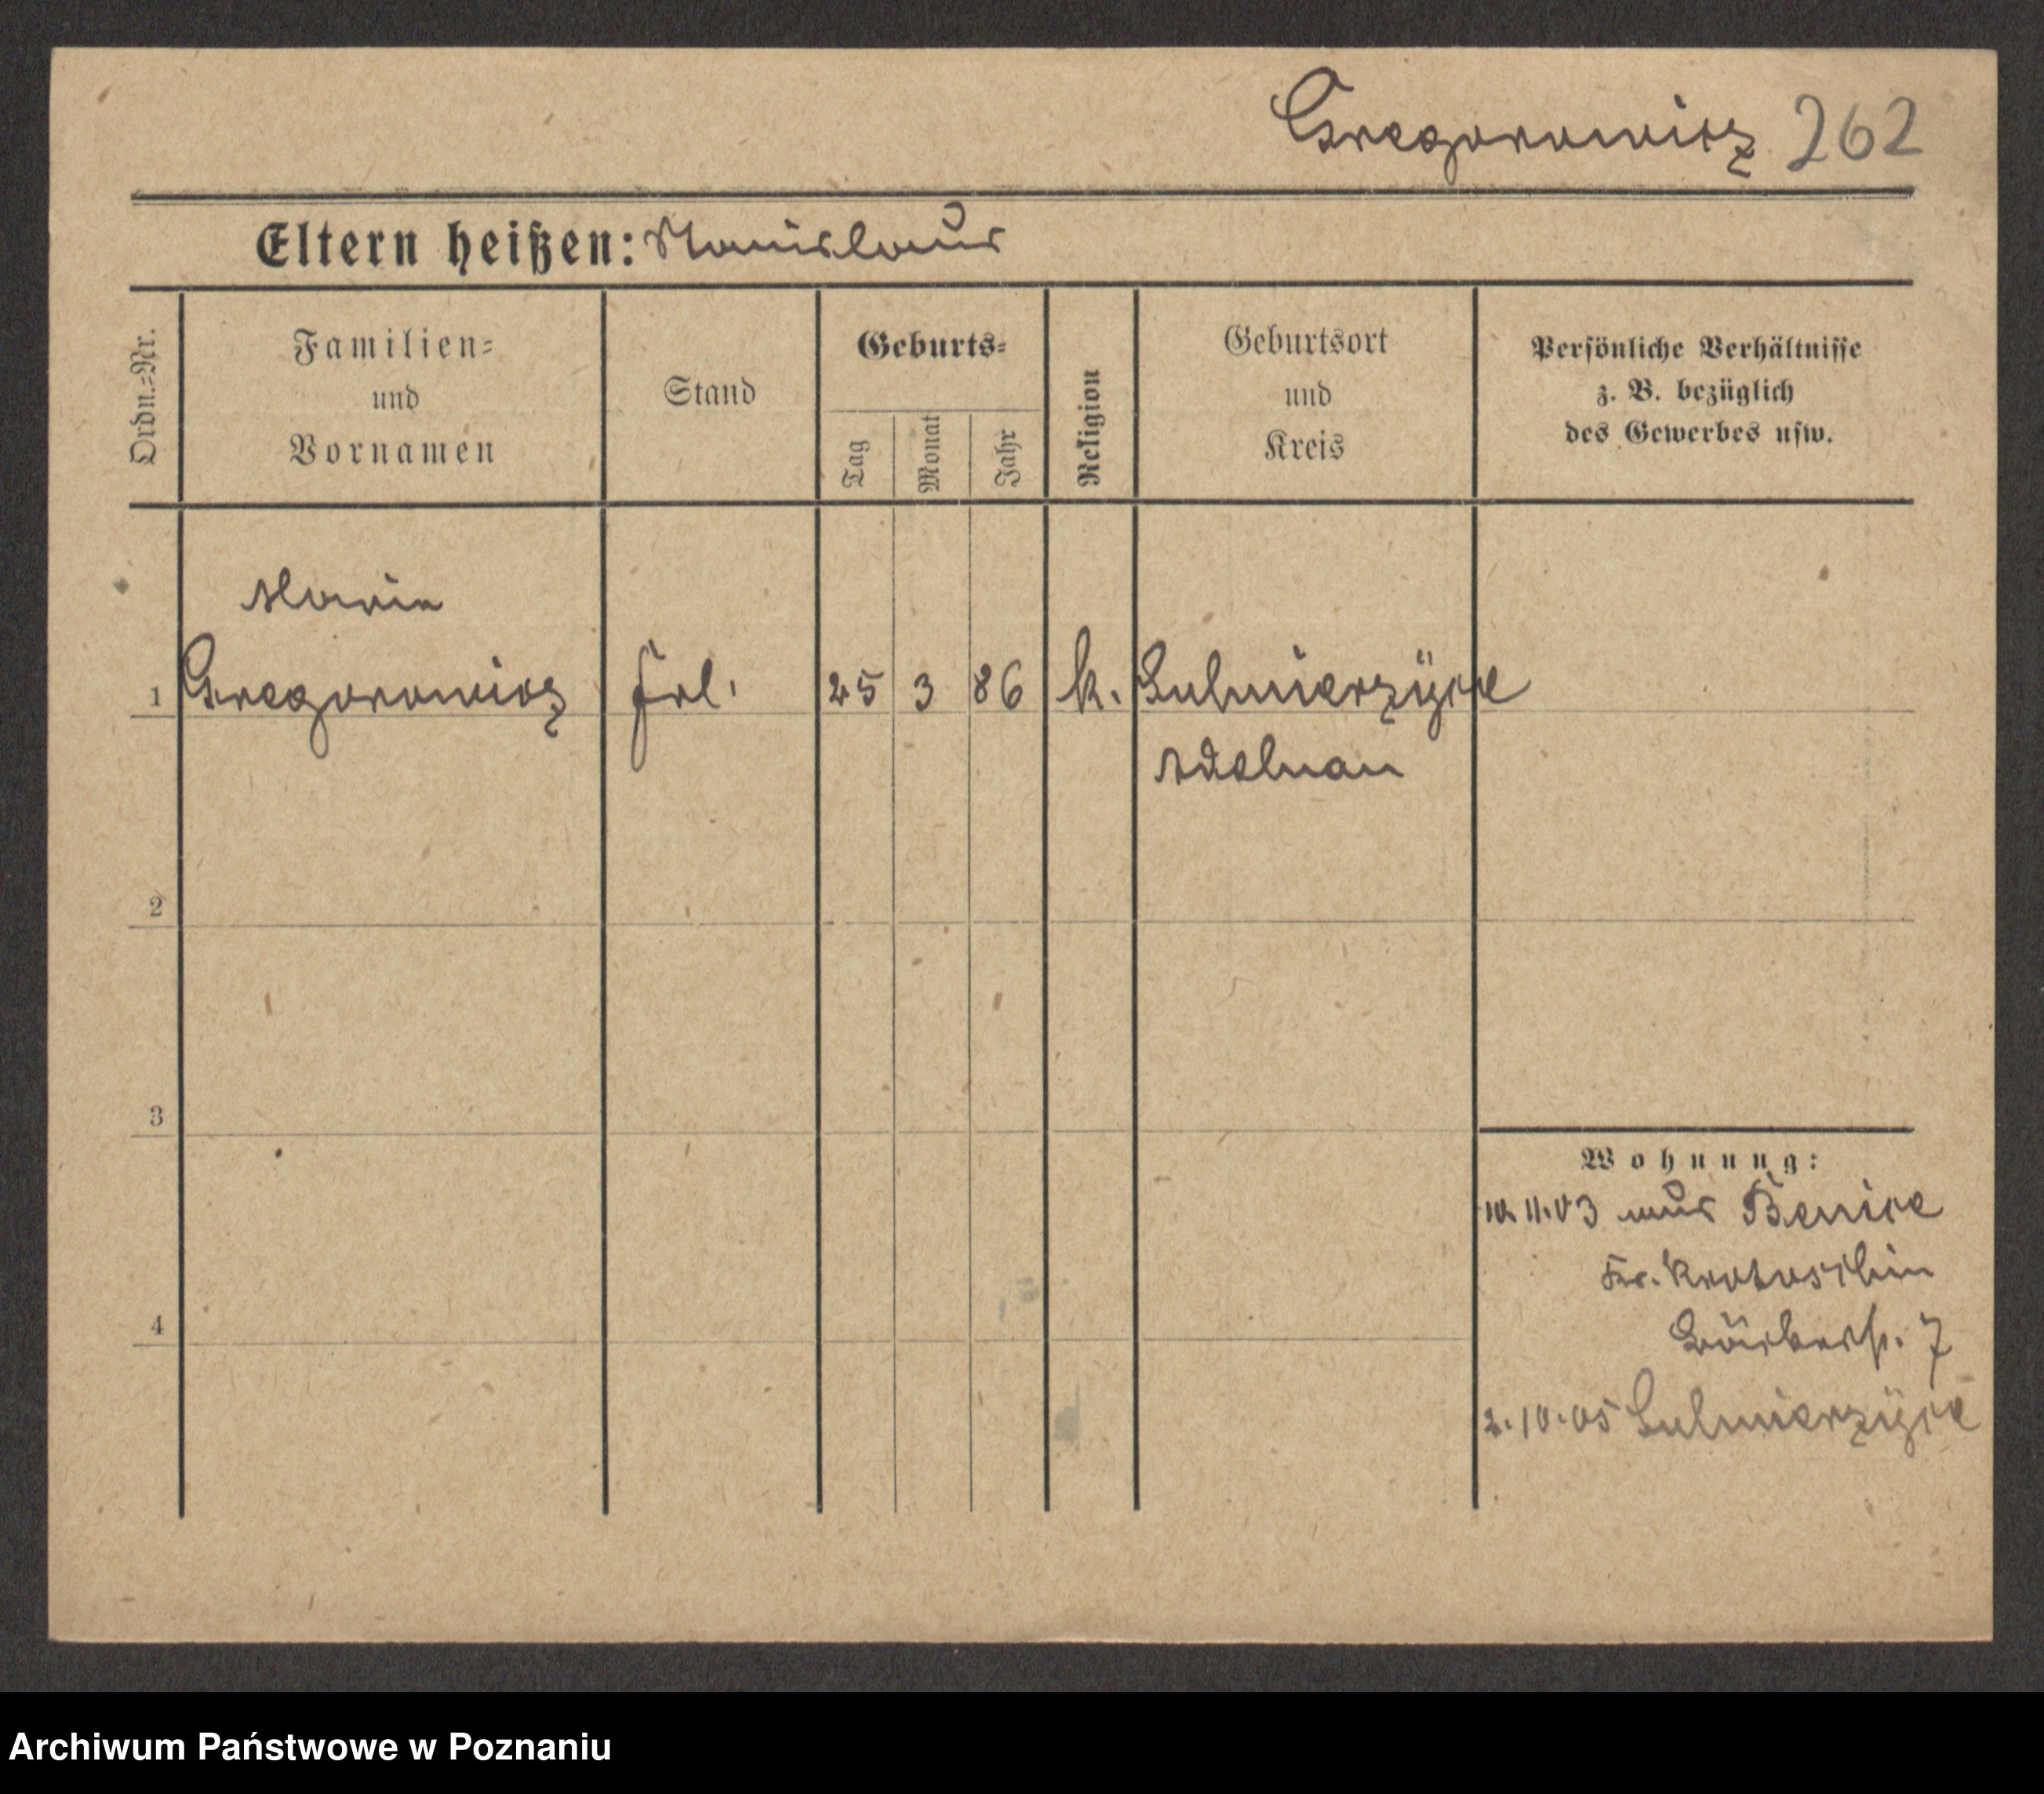 Gregorowicz 262
Eltern heißen: Stanislaus
Ordn.=Nr.
Familien=
und
Vornamen
Stand
Geburts=
Tag
Monat
Jahr
Religion
Geburtsort
und
Kreis
Persönliche Verhältnisse
z. B. bezüglich
des Gewerbes usw.
Maria
1 Gregorowicz Frl. 25 3 86 k. Sulmierzyce
Adelnau
2
3
4
Wohnung:
11.03 aus Benice
Kr. Krotoschin
7
2.10.05 Sulmierzyce
Archiwum Państwowe w Poznaniu